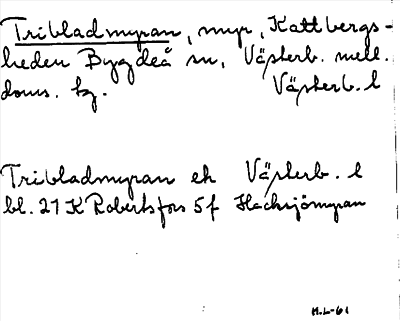 Tribladmyran, myr, Kattbergs-
heden Bygdeå sn, Västerb. mell.
doms. hg. Västerb. l
Tribladmyran ek Västerb. l
bl. 21 K Robertsfors 5 f Hacksjömyran
H.L-61